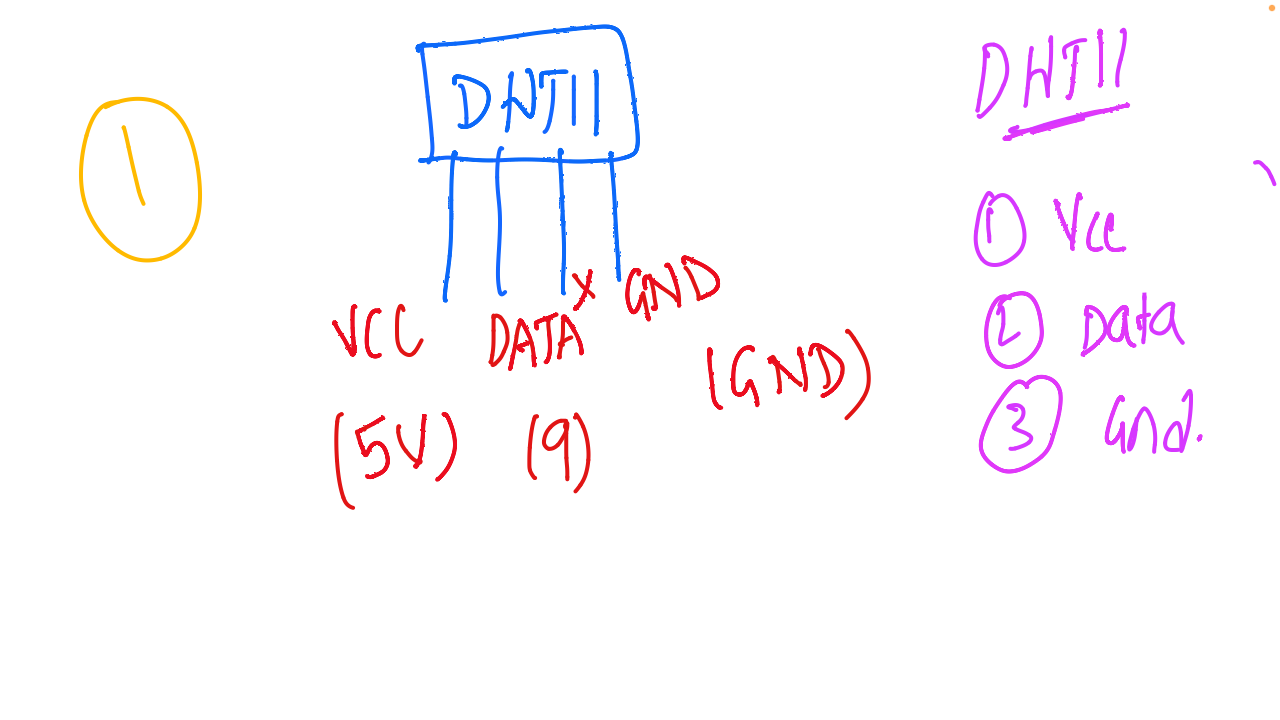 1
DHT11
VCC DATA X GND
(5V) (9) (GND)
DHT11
1 Vcc
2 Data
3 Gnd.